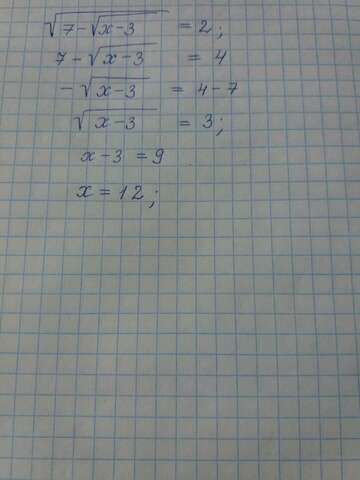 √(7-√(x-3)) = 2;
7-√(x-3) = 4
-√(x-3) = 4-7
√(x-3) = 3;
x-3 = 9
x = 12;